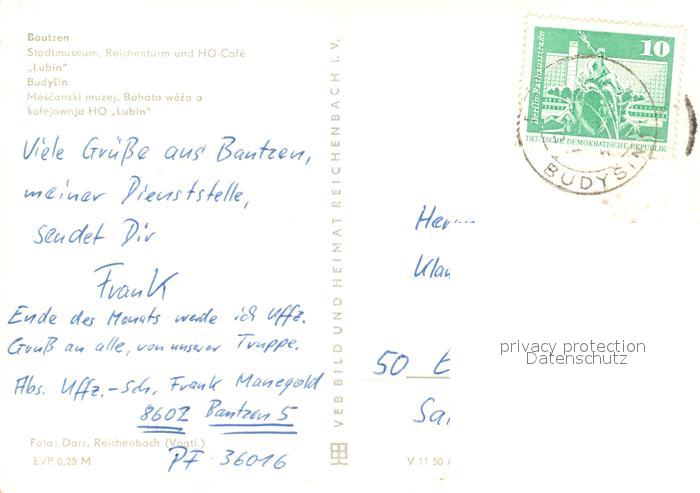 Bautzen
Stadtmuseum, Reichenturm und HO-Café
„Lubin"
Budyšin
Měšćanski muzej, Bohata wěža a
kofejownja HO „Lubin"
Viele Grüße aus Bautzen,
meiner Dienststelle,
sendet Dir
Frank
Ende des Monats werde ich Uffz.
Gruß an alle, von unserer Truppe.
Abs. Uffz.-Sch. Frank Manegold
8602 Bautzen 5
PF 36016
Foto: Darr, Reichenbach (Vogtl.)
EVP 0,25 M
VEB BILD UND HEIMAT REICHENBACH I. V.
V 11 50
10
Berlin-Rathausstraße
DEUTSCHE DEMOKRATISCHE REPUBLIK
BUDYŠIN
Her
Klau
50
Sa
privacy protection
Datenschutz